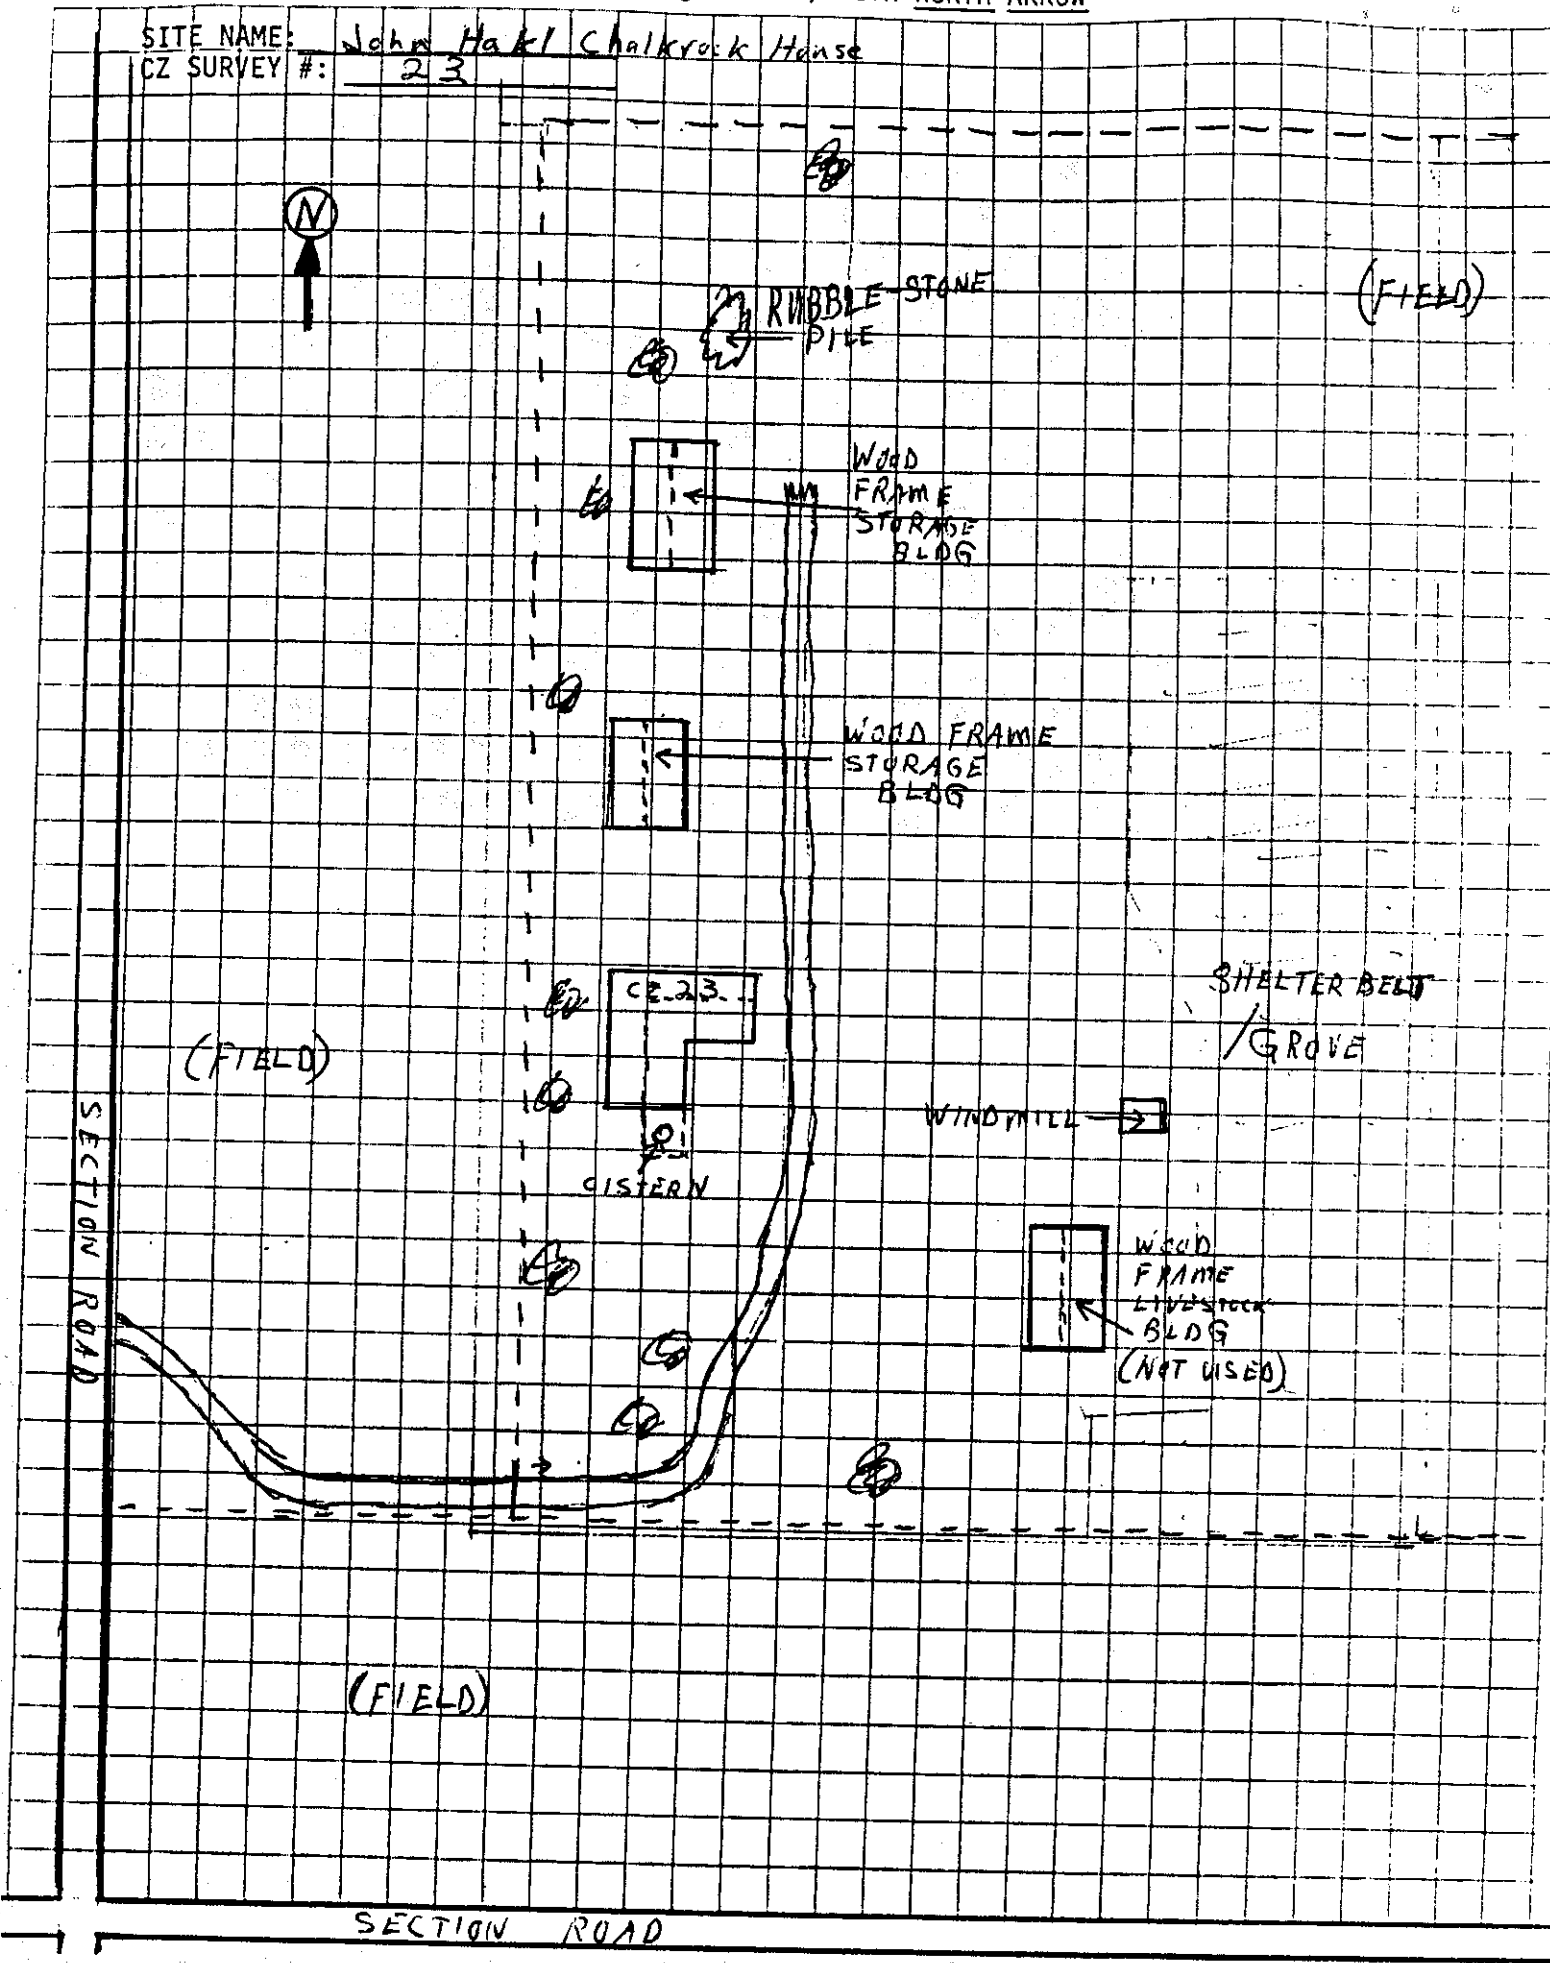 NORTH ARROW
SITE NAME: John Hakl Chalkrock House
CZ SURVEY #: 23
N
RUBBLE-STONE
PILE
(FIELD)
WOOD
FRAME
STORAGE
BLDG
WOOD FRAME
STORAGE
BLDG
CZ-23
SHELTER BELT
/GROVE
(FIELD)
WINDMILL
CISTERN
SECTION ROAD
WOOD
FRAME
LIVESTOCK
BLDG
(NOT USED)
(FIELD)
SECTION ROAD